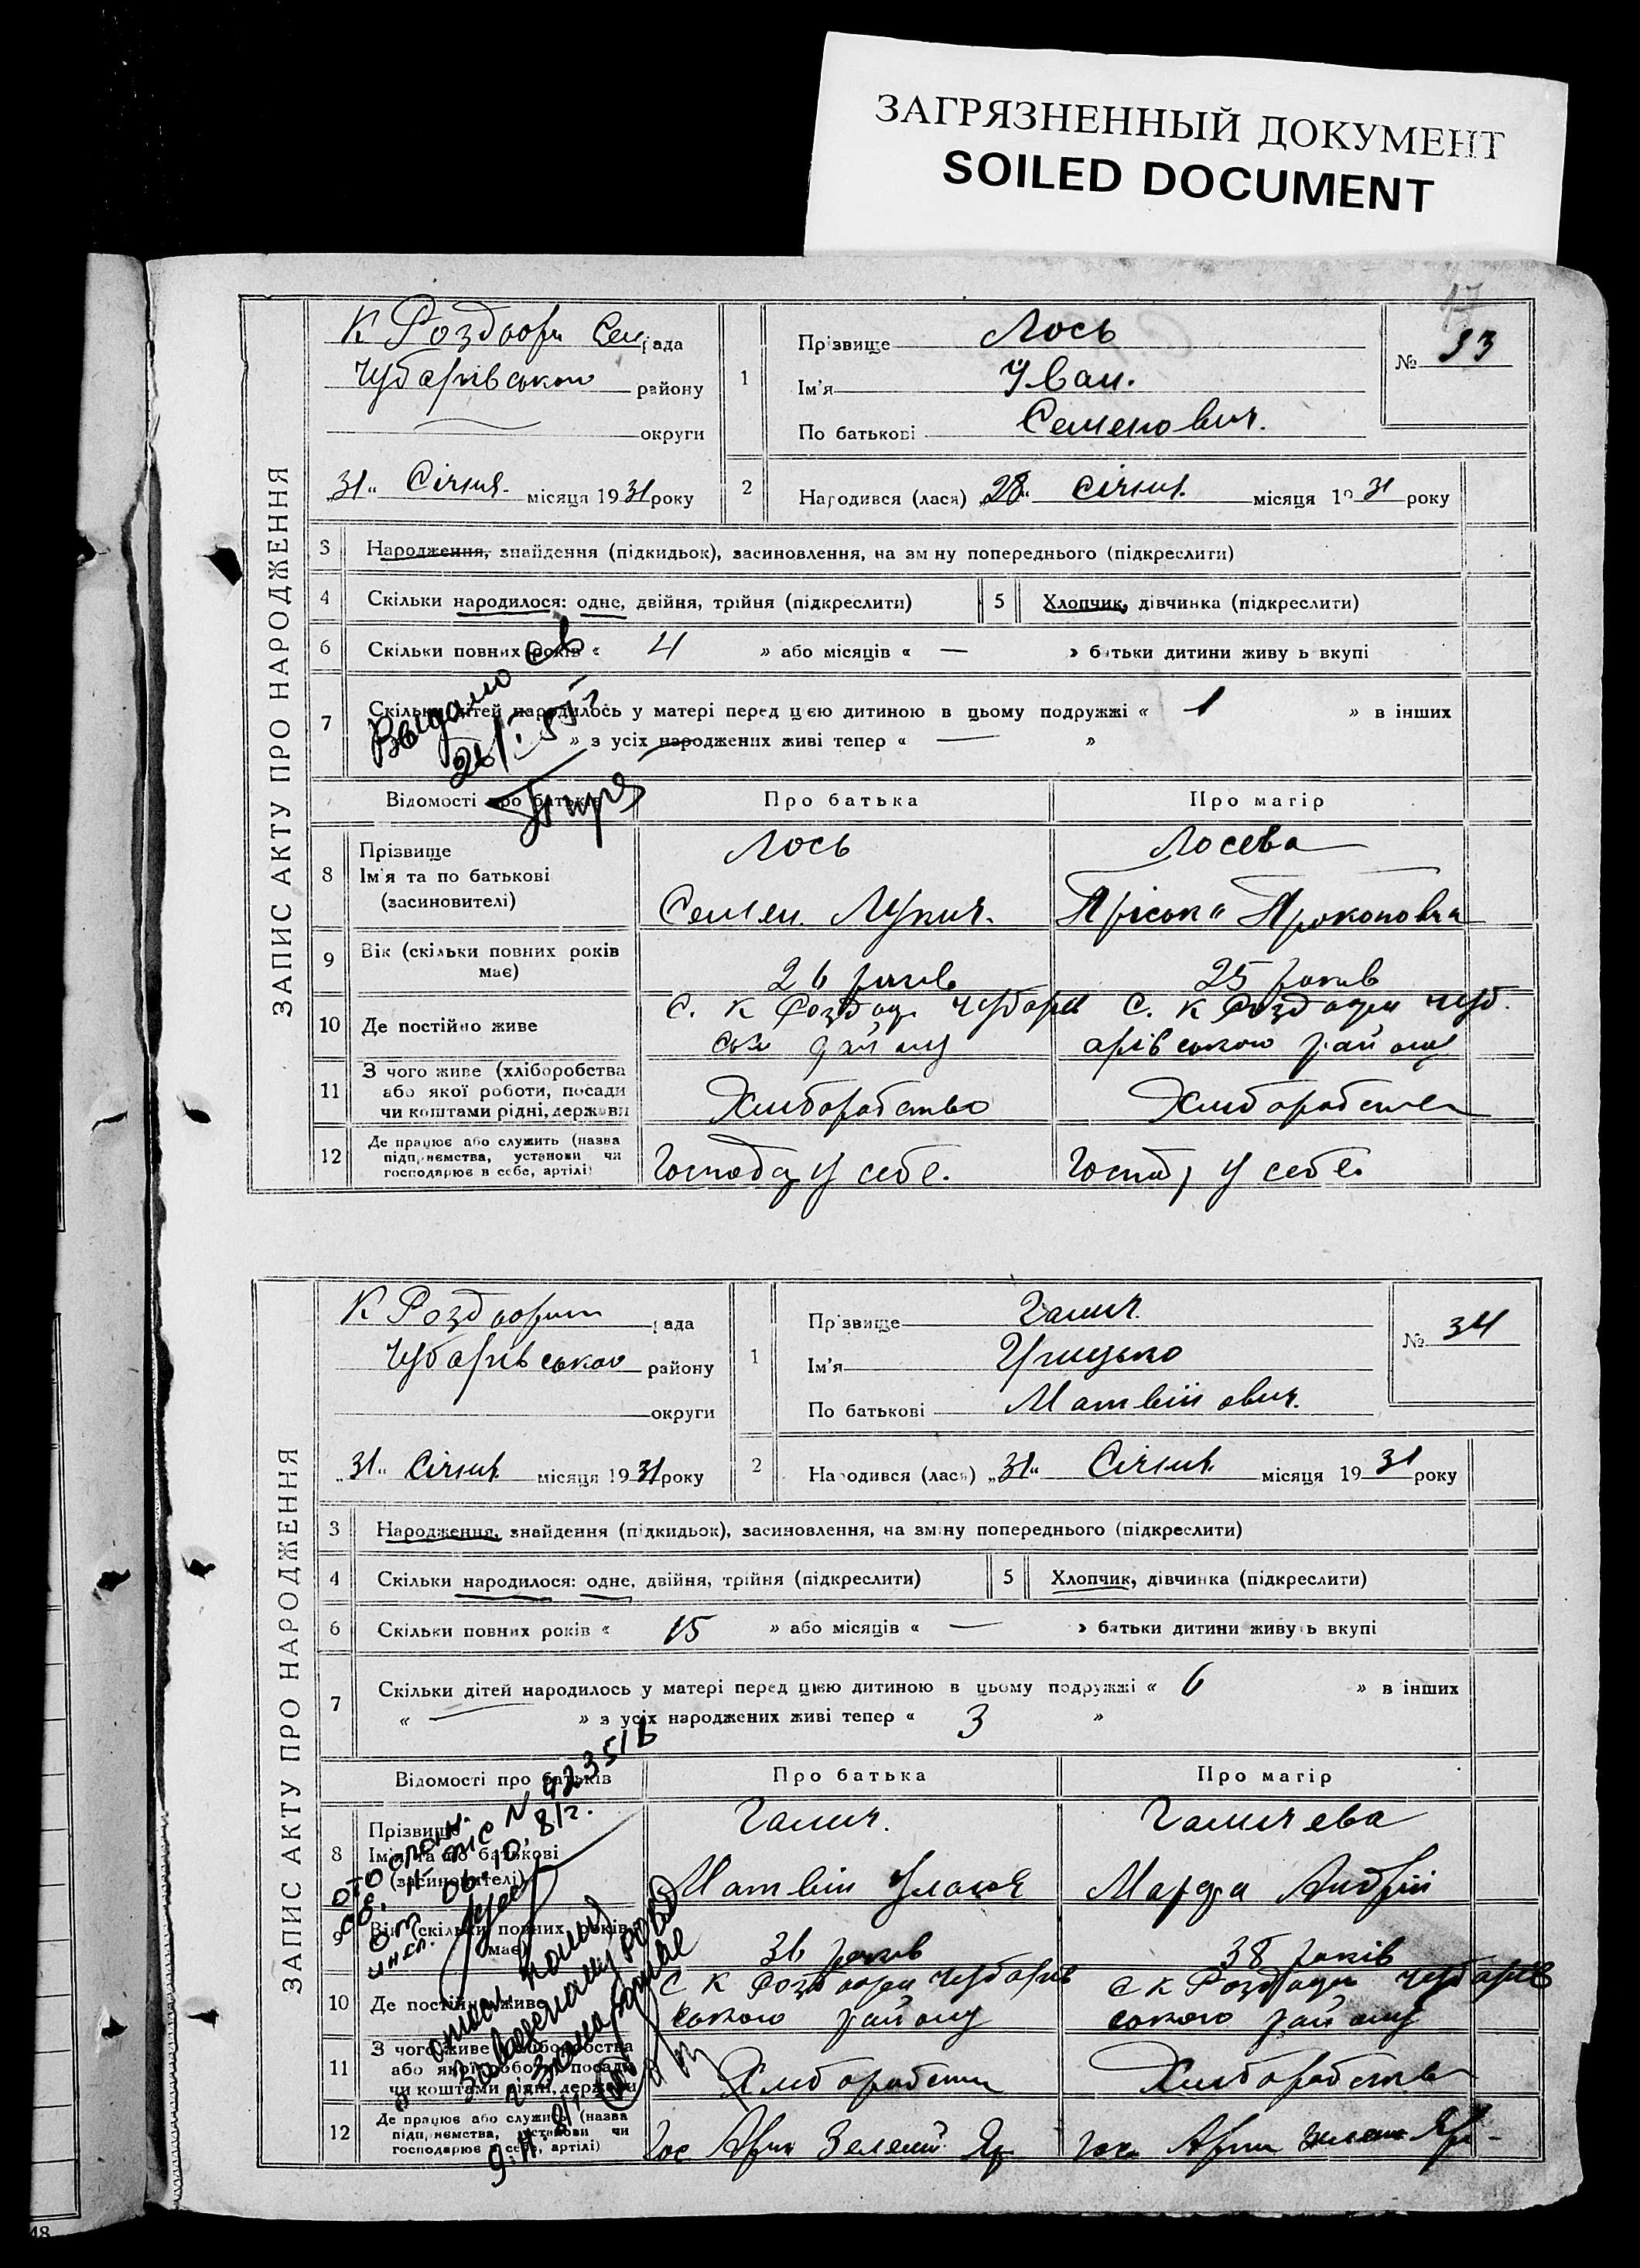 ЗАГРЯЗНЕННЫЙ ДОКУМЕНТ
SOILED DOCUMENT
17
ЗАПИС АКТУ ПРО НАРОДЖЕННЯ
К Роздори Сел рада
Чубарівського району
округи
„31“ Січня місяця 1931 року
1
Прізвище Лось
Ім'я Іван.
По батькові Семенович.
№ 33
2 Народився (лася) „28“ Січня місяця 1931 року
3 Народження, знайдення (підкидьок), засиновлення, на зміну попереднього (підкреслити)
4 Скільки народилося: одне, двійня, трійня (підкреслити)
5 Хлопчик, дівчинка (підкреслити)
6 Скільки повних років « 4 » або місяців « — » батьки дитини живуть вкупі
7 Скільки дітей народилось у матері перед цією дитиною в цьому подружжі « 1 » в інших
» з усіх народжених живі тепер « — »
Відомості про батьків Про батька Про матір
8 Прізвище
Ім'я та по батькові
(засиновителі)
Лось Лосева
Семен Лукич. Пріська Прокоповна
9 Вік (скільки повних років має)
26 років 25 років
10 Де постійно живе
С. К Роздори Чубарів С. К Роздори Чуб
ськ району арівського району
11 З чого живе (хліборобства
або якої роботи, посади
чи коштами рідні, держави
Хліборобство Хліборобство
12 Де працює або служить (назва
підприємства, установи чи
господарює в себе, артілі)
Господар у себе. Господ у себе
ЗАПИС АКТУ ПРО НАРОДЖЕННЯ
К Роздори рада
Чубарівського району
округи
„31“ Січня місяця 1931 року
1
Прізвище Галич.
Ім'я Грицько
По батькові Матвійович.
№ 34
2 Народився (лася) „31“ Січня місяця 1931 року
3 Народження, знайдення (підкидьок), засиновлення, на зміну попереднього (підкреслити)
4 Скільки народилося: одне, двійня, трійня (підкреслити)
5 Хлопчик, дівчинка (підкреслити)
6 Скільки повних років « 15 » або місяців « — » батьки дитини живуть вкупі
7 Скільки дітей народилось у матері перед цією дитиною в цьому подружжі « 6 » в інших
« — » з усіх народжених живі тепер « 3 »
Відомості про батьків Про батька Про матір
8 Прізвище
Ім'я та по батькові
(засиновителі)
Галич. Галичева
Матвій Марфа Андрій
9 Вік (скільки повних років має)
36 років 38 років
10 Де постійно живе
С К Роздори Чубарів С К Роздори Чубарів
ського району ського району
11 З чого живе (хліборобства
або якої роботи, посади
чи коштами рідні, держави
Хліборобство Хліборобство
12 Де працює або служить (назва
підприємства, установи чи
господарює в себе, артілі)
Гос Артіл Зелений Яр Гос Артіл Зелений Яр
48